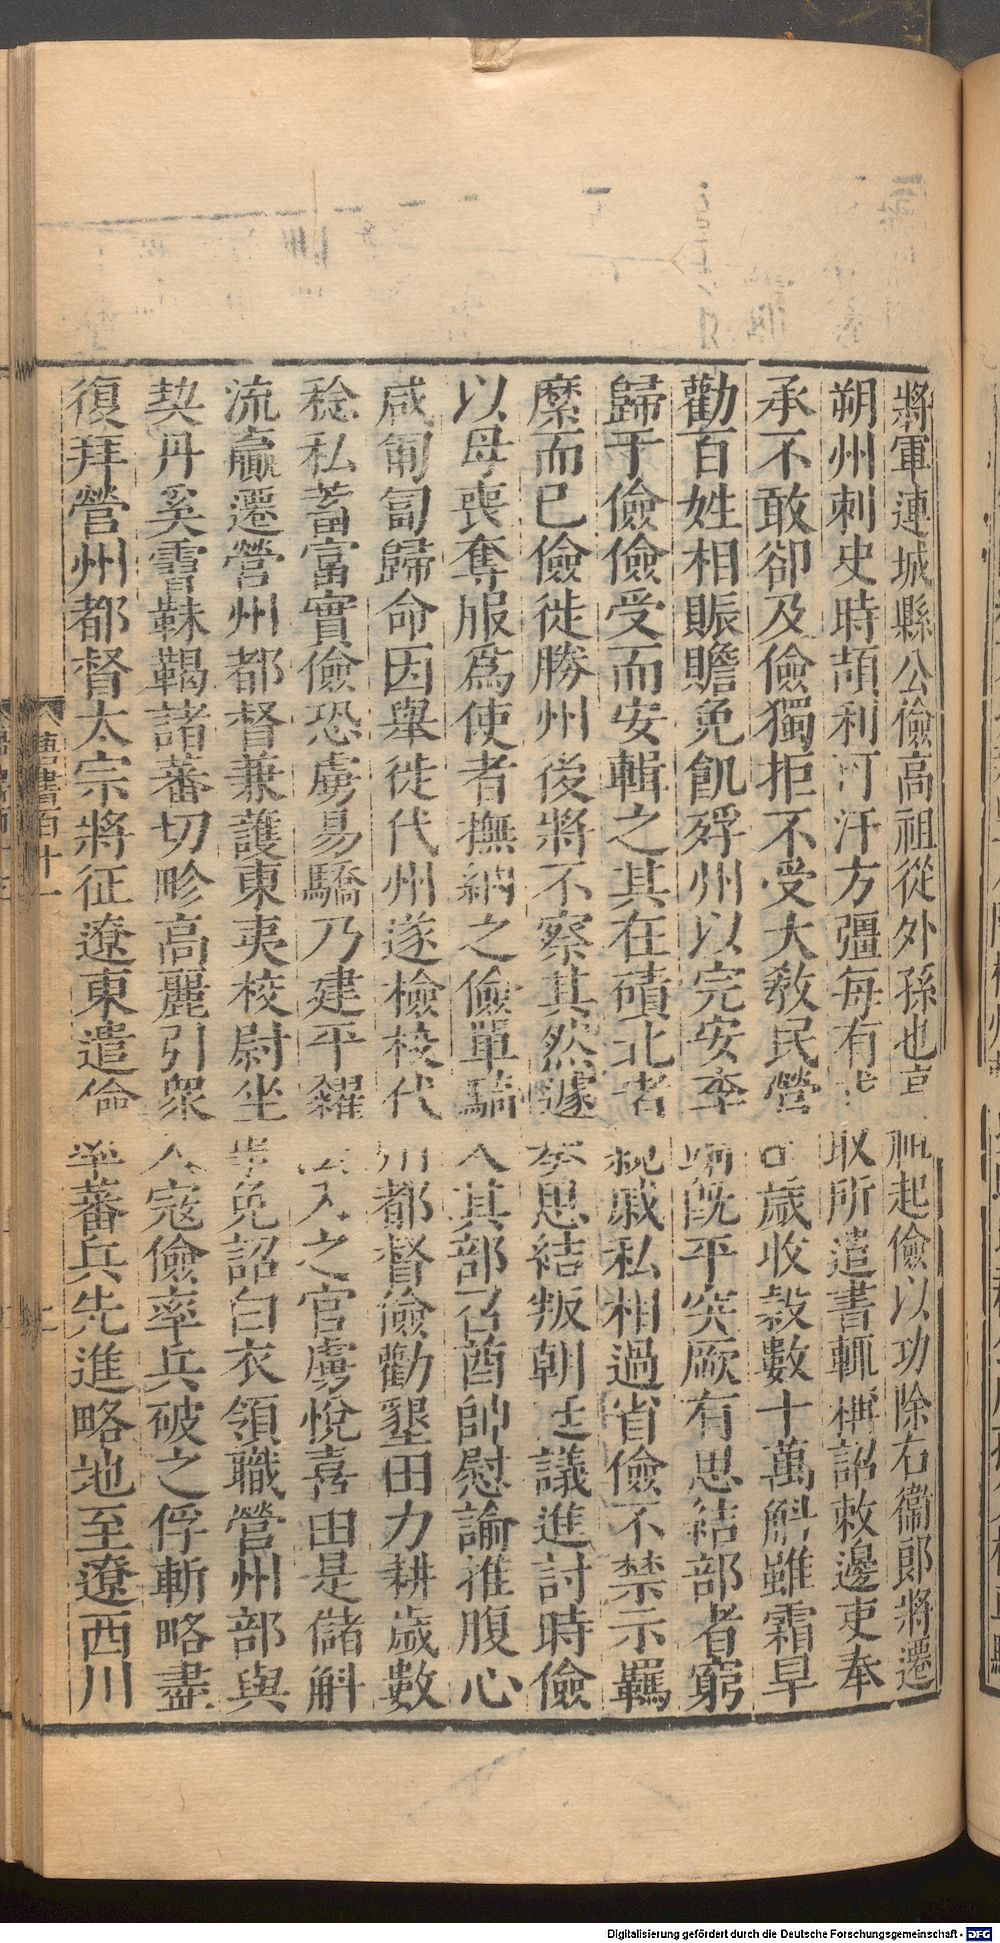 將軍連城縣公儉高祖從外孫也高祖起儉以功除右衞郎將遷
朔州刺史時頡利可汗方彊每有求取所遣書輒稱詔敕邊吏奉
承不敢卻及儉獨拒不受大敎民營田歲收穀數十萬斛雖霜旱
勸百姓相賑贍免飢殍州以完安李靖旣平突厥有思結部者窮
歸于儉儉受而安輯之其在磧北者親戚私相過省儉不禁示羈
縻而已儉徙勝州後將不察其然遽奏思結叛朝廷議進討時儉
以母喪奪服爲使者撫納之儉單騎入其部召酋帥慰諭推腹心
咸匍匐歸命因舉徙代州遂檢校代州都督儉勸墾田力耕歲數
稔私蓄富實儉恐虜易驕乃建平糴法入之官虜悅喜由是儲斛
流贏遷營州都督兼護東夷校尉坐事免詔白衣領職營州部與
契丹奚霫靺鞨諸蕃切畛高麗引衆入寇儉率兵破之俘斬略盡
復拜營州都督太宗將征遼東遣儉率蕃兵先進略地至遼西川
唐書百十一
Digitalisierung gefördert durch die Deutsche Forschungsgemeinschaft - DFG